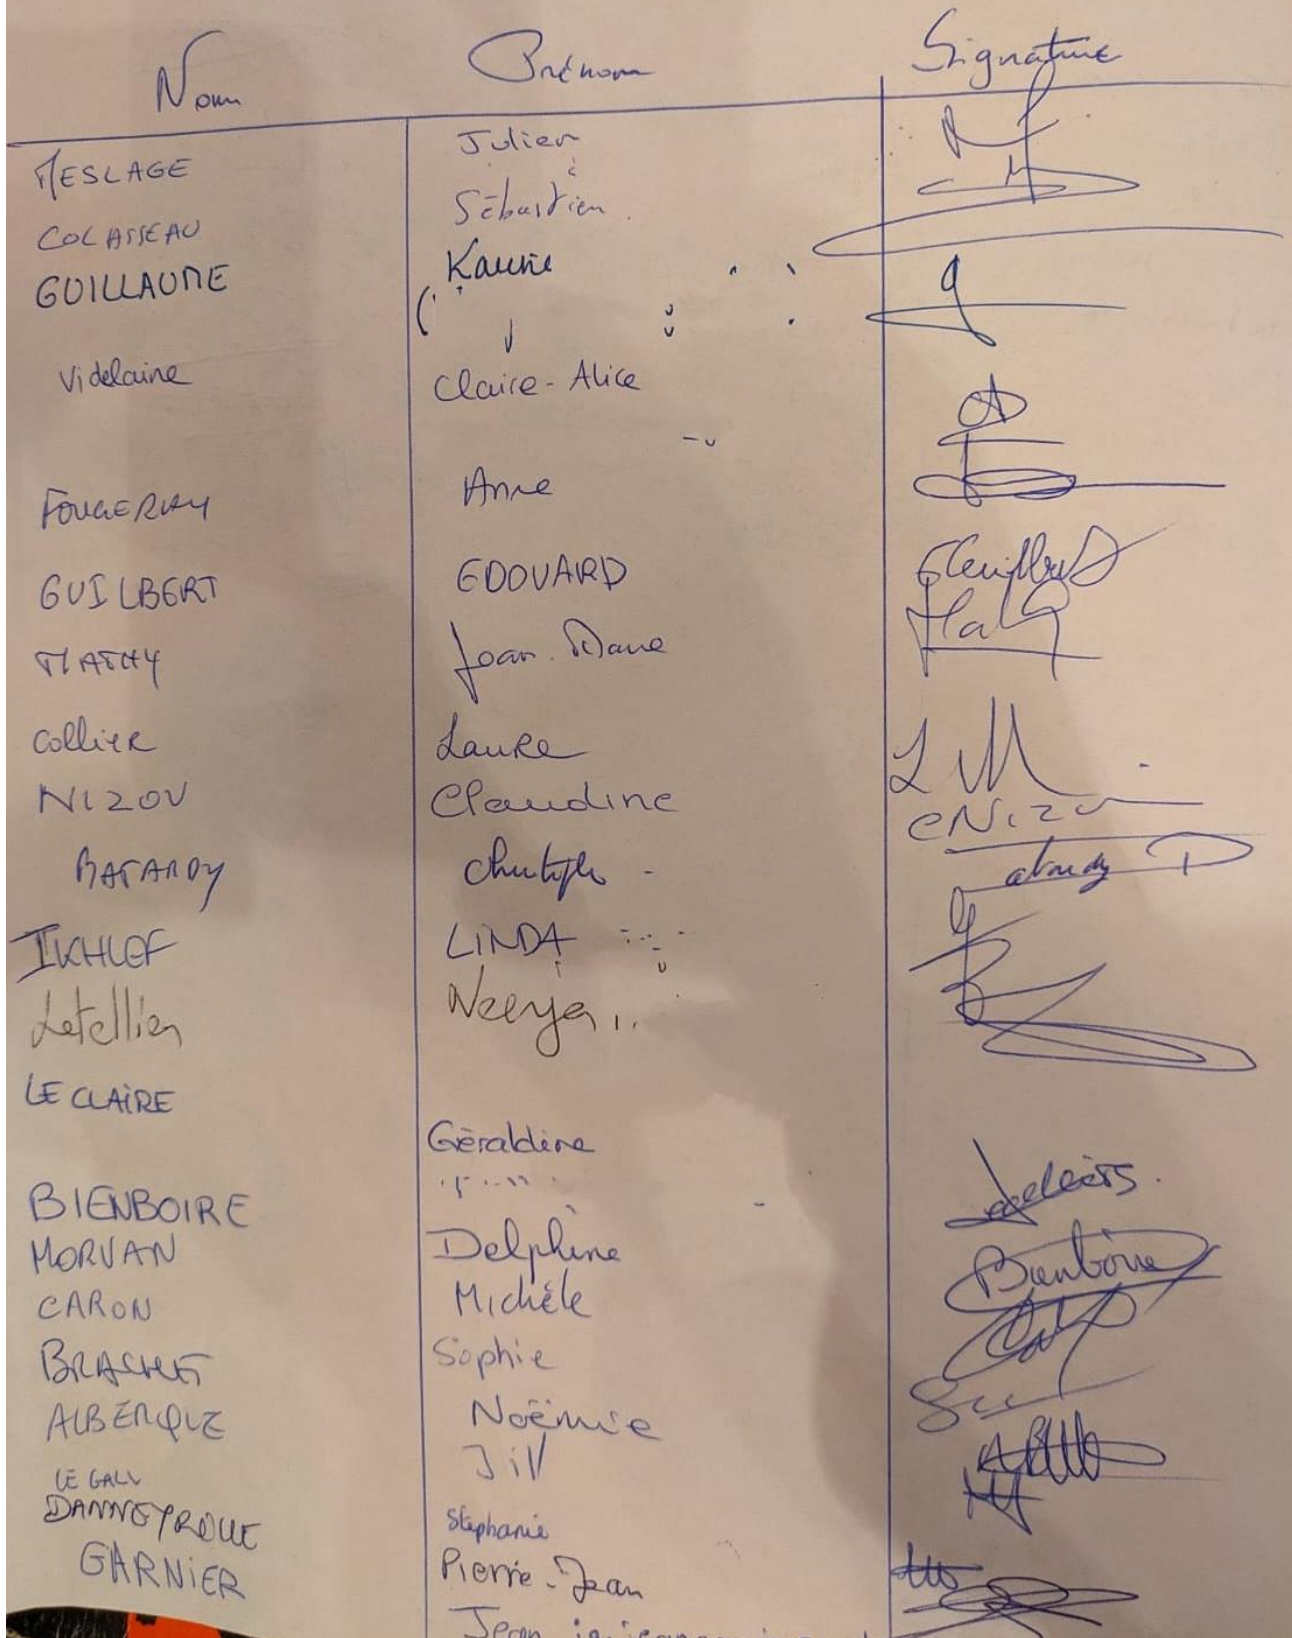 Nom Prénom Signature
MESLAGE Julien
COLASSEAU Sébastien
GUILLAUME Karine
Videlaine Claire-Alice
FOUGERAY Anne
GUILBERT EDOUARD
MATHY Jean-Marie
Collier Laure
NIZOU Claudine CNizou
BATARDY Christophe
IKHLEF LINDA
Letellier
LE CLAIRE Géraldine
BIENBOIRE Delphine Bienboire
MORVAN Michèle
CARON Sophie
BRACHET Noëmie
ALBERQUE Jill
LE GALL Stephanie
DANNEYROLLE Pierre-Jean
GARNIER Jean